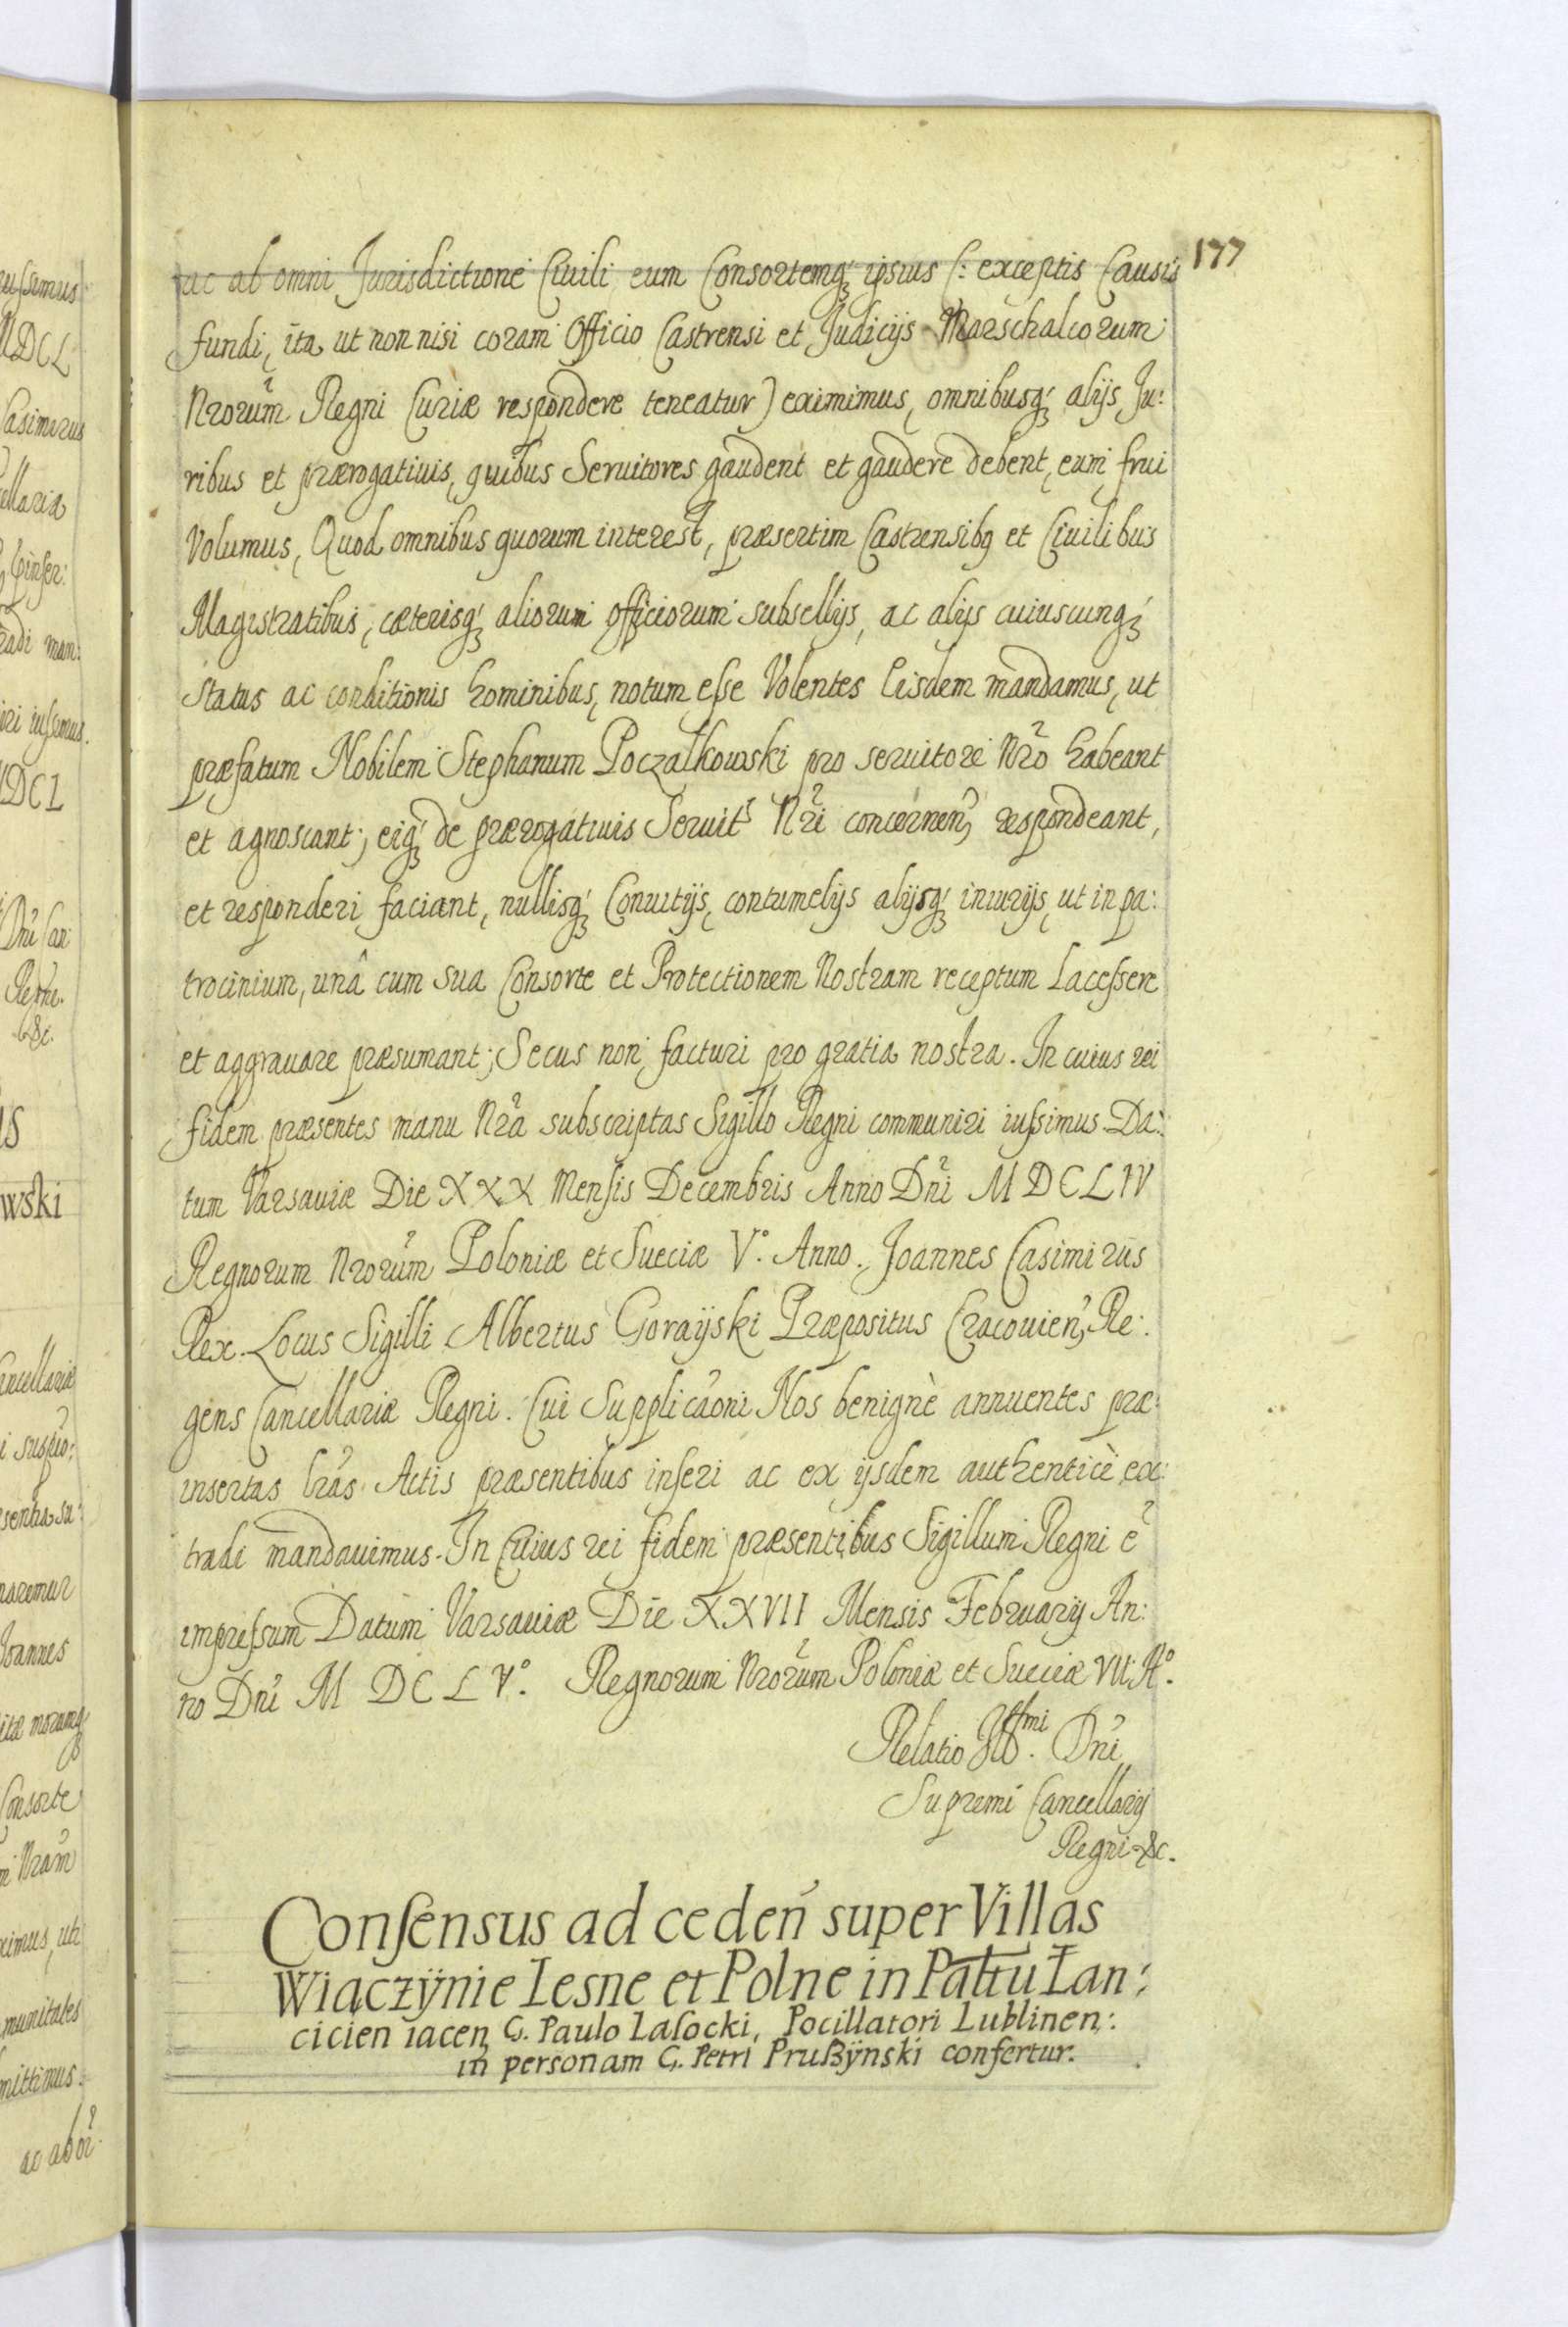 177
ac ab omni Jurisdictione Civili eum Consortemq́ ipsius (: exceptis Causis
fundi, ita ut non nisi coram Officio Castrensi et Judicijs Marschalcorum
Nrorum Regni Curiæ respondere teneatur) eximimus, omnibusq́ alijs Ju:
ribus et prærogativis, quibus Servitores gaudent et gaudere debent, eum frui
Volumus, Quod omnibus quorum interest, præsertim Castrensibq et Civilibus
Magistratibus, cæterisq́ aliorum officiorum subsellijs, ac alijs cuiuscunq́
status ac conditionis hominibus, notum esse Volentes Eisdem mandamus, ut
præfatum Nobilem Stephanum Poczalkowski pro servitore Nro habeant
et agnoscant; eiq́ de prærogativis Servit Nri concernen, respondeant,
et responderi faciant, nullisq́ Convitijs, contumelijs alijsq́ iniurijs, ut in pa:
trocinium, unâ cum sua Consorte et Protectionem Nostram receptum Lacessere
et aggravare præsumant; Secus non facturi pro gratia nostra. In cuius rei
fidem præsentes manu Nra subscriptas Sigillo Regni communiri iussimus Da:
tum Varsaviæ Die XXX Mensis Decembris Anno Dni M D C L IV
Regnorum Nrorum Poloniæ et Sueciæ V.° Anno. Joannes Casimirus
Rex. Locus Sigilli Albertus Gorayski Præpositus Cracovien, Re:
gens Cancellariæ Regni. Cui Supplicaoni Nos benignè annuentes præ:
insertas lras Actis præsentibus inseri ac ex ijsdem authenticè ex:
tradi mandavimus. In Cuius rei fidem præsentibus Sigillum Regni e
impressum Datum Varsaviæ Die XXVII Mensis Februarij An:
no Dni M D C L V°. Regnorum Nrorum Poloniæ et Sueciæ VII. A°.
Relatio Illmi. Dni
Supremi Cancellarij
Regni &c.
Consensus ad ceden super Villas
Wiączÿnie Lesne et Polne in Pałtu Łan:
cicien iacen G. Paulo Lasocki, Pocillatori Lublinen:
in personam G. Petri Prußÿnski confertur.